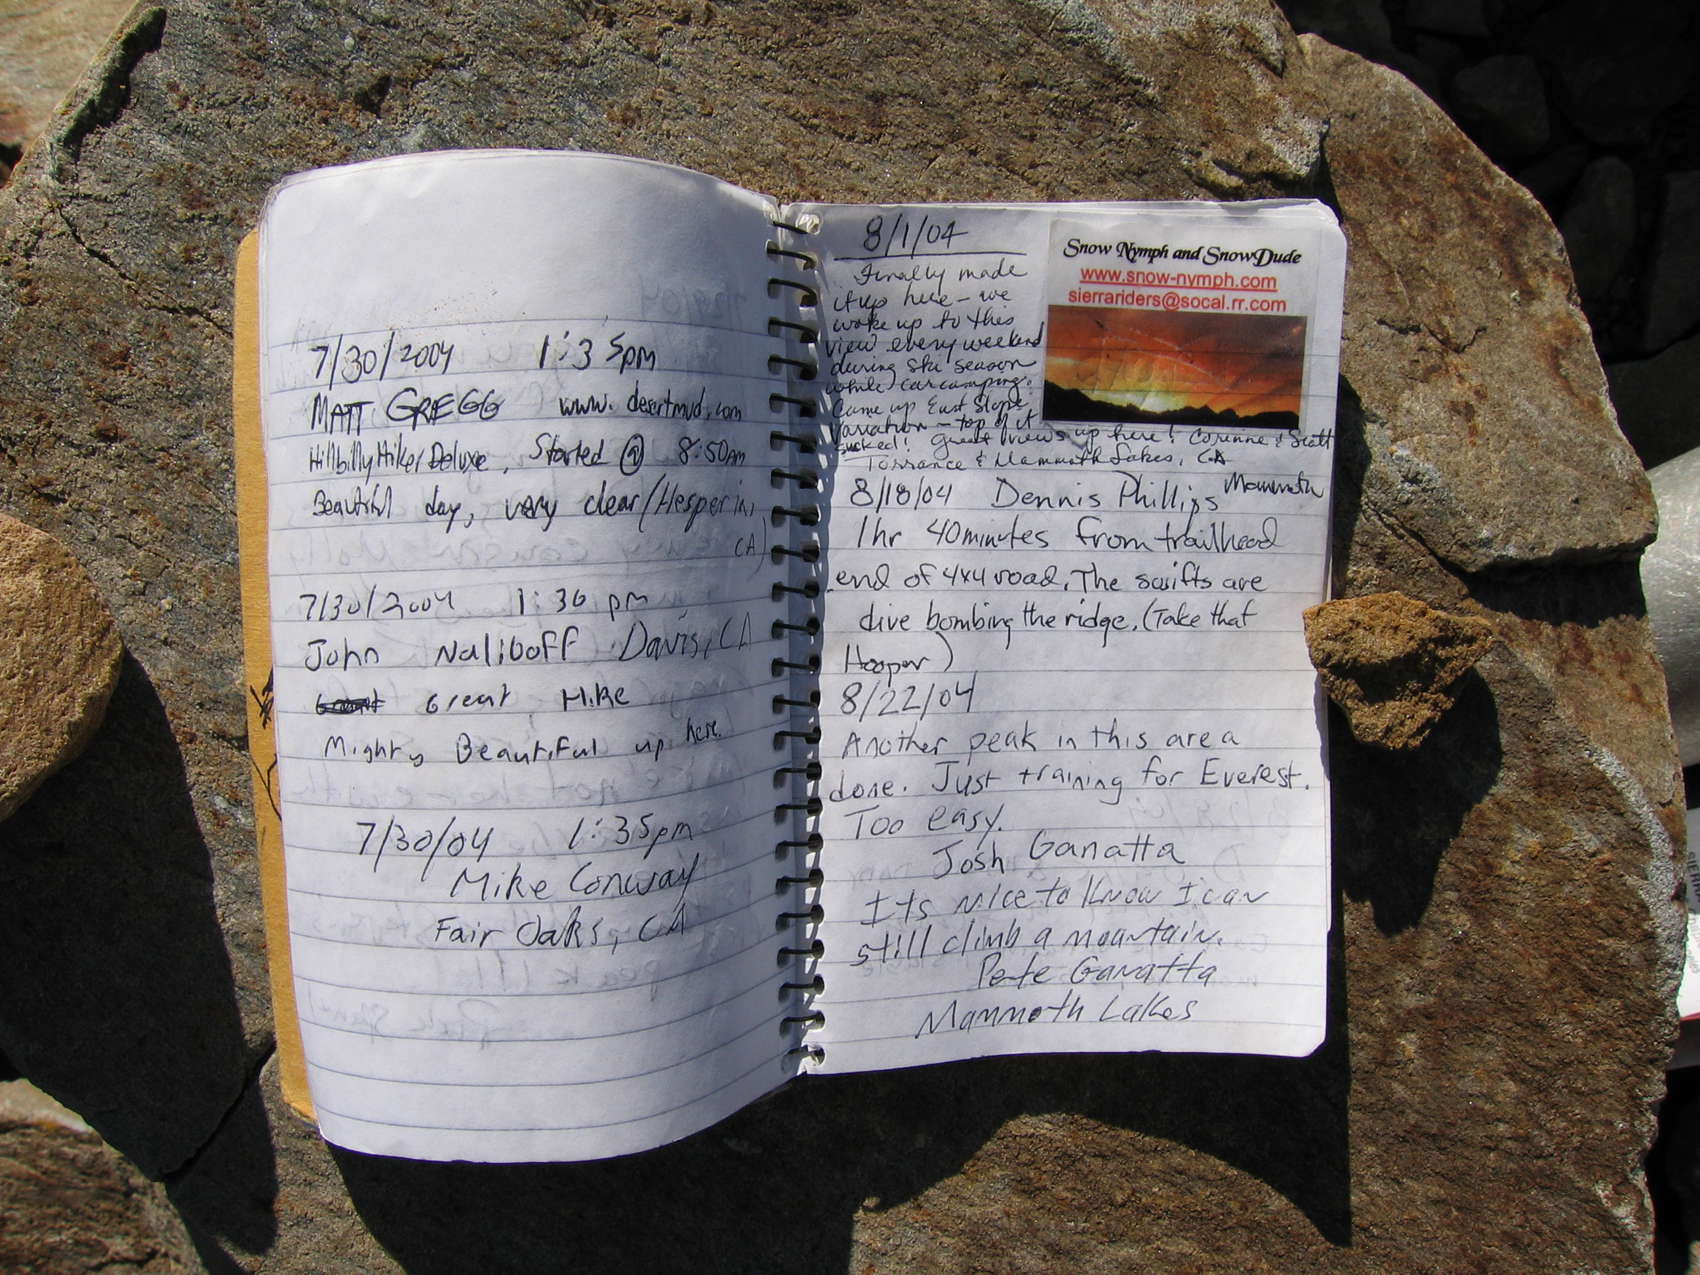 7/30/2004 1:35pm
MATT GREGG www.desertmud.com
HillbillyHikerDeluxe, Started @ 8:50AM
Beautiful day, very clear (Hesperia,
CA)
7/30/2004 1:30 pm
John Naliboff Davis, CA
Great Hike
Mighty Beautiful up here.
7/30/04 1:35pm
Mike Conway
Fair Oaks, CA
8/1/04
Finally made
it up here - we
wake up to this
view every weekend
during ski season
while carcamping.
Came up East Slope
Variation - top of it
sucked! Great views up here! Corinne & Scott
Torrance & Mammoth Lakes, CA
Snow Nymph and SnowDude
www.snow-nymph.com
sierrariders@socal.rr.com
8/18/04 Dennis Phillips Mammoth
1hr 40minutes from trailhead
end of 4x4 road. The swifts are
dive bombing the ridge. (Take that
Hooper)
8/22/04
Another peak in this are a
done. Just training for Everest.
Too easy.
Josh Ganatta
Its nice to know I can
still climb a mountain.
Pete Ganatta
Mammoth Lakes